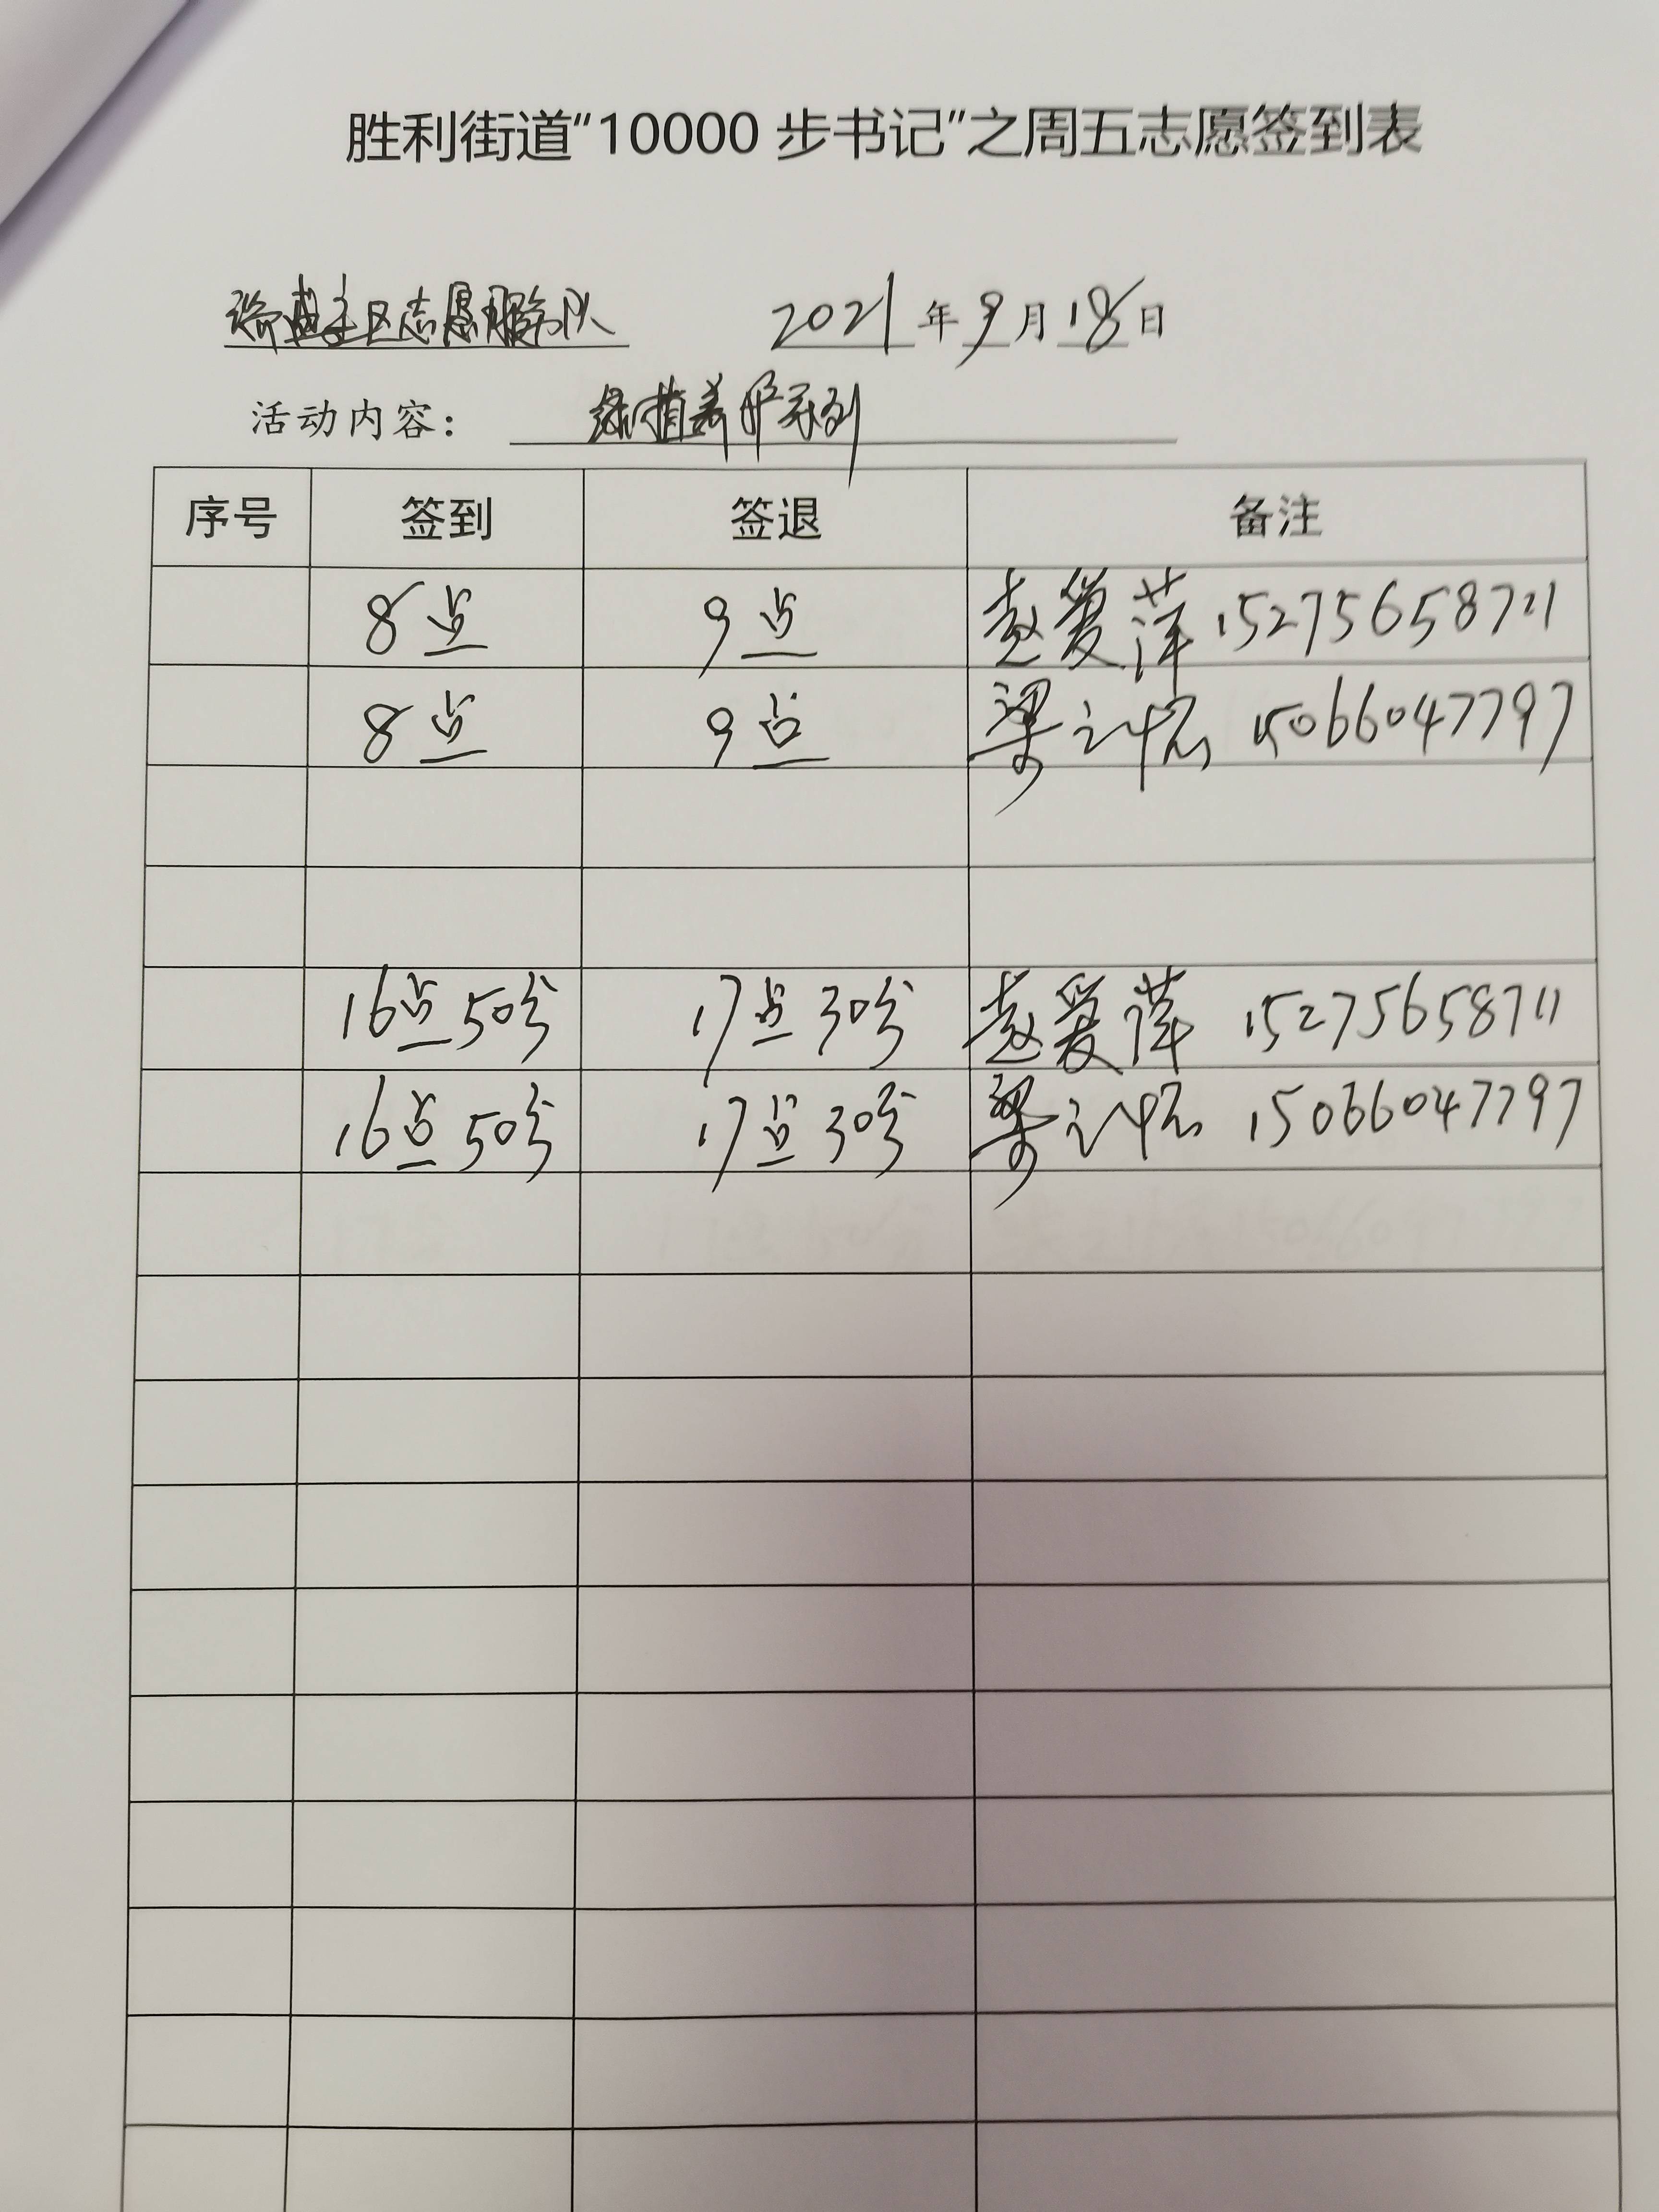 胜利街道“10000 步书记”之周五志愿签到表
区志愿服务队 2021年9月18日
活动内容: 绿植养护系列
序号 签到 签退 备注
8点 9点 赵爱萍 15275658711
8点 9点 梁 15066047797
16点50分 17点30分 赵爱萍 15275658711
16点50分 17点30分 梁 15066047797